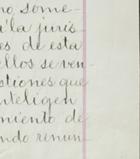 no some-
a la juris
es de esta
ellos se ven-
stiones que
nteligen
miento de
ndo renun